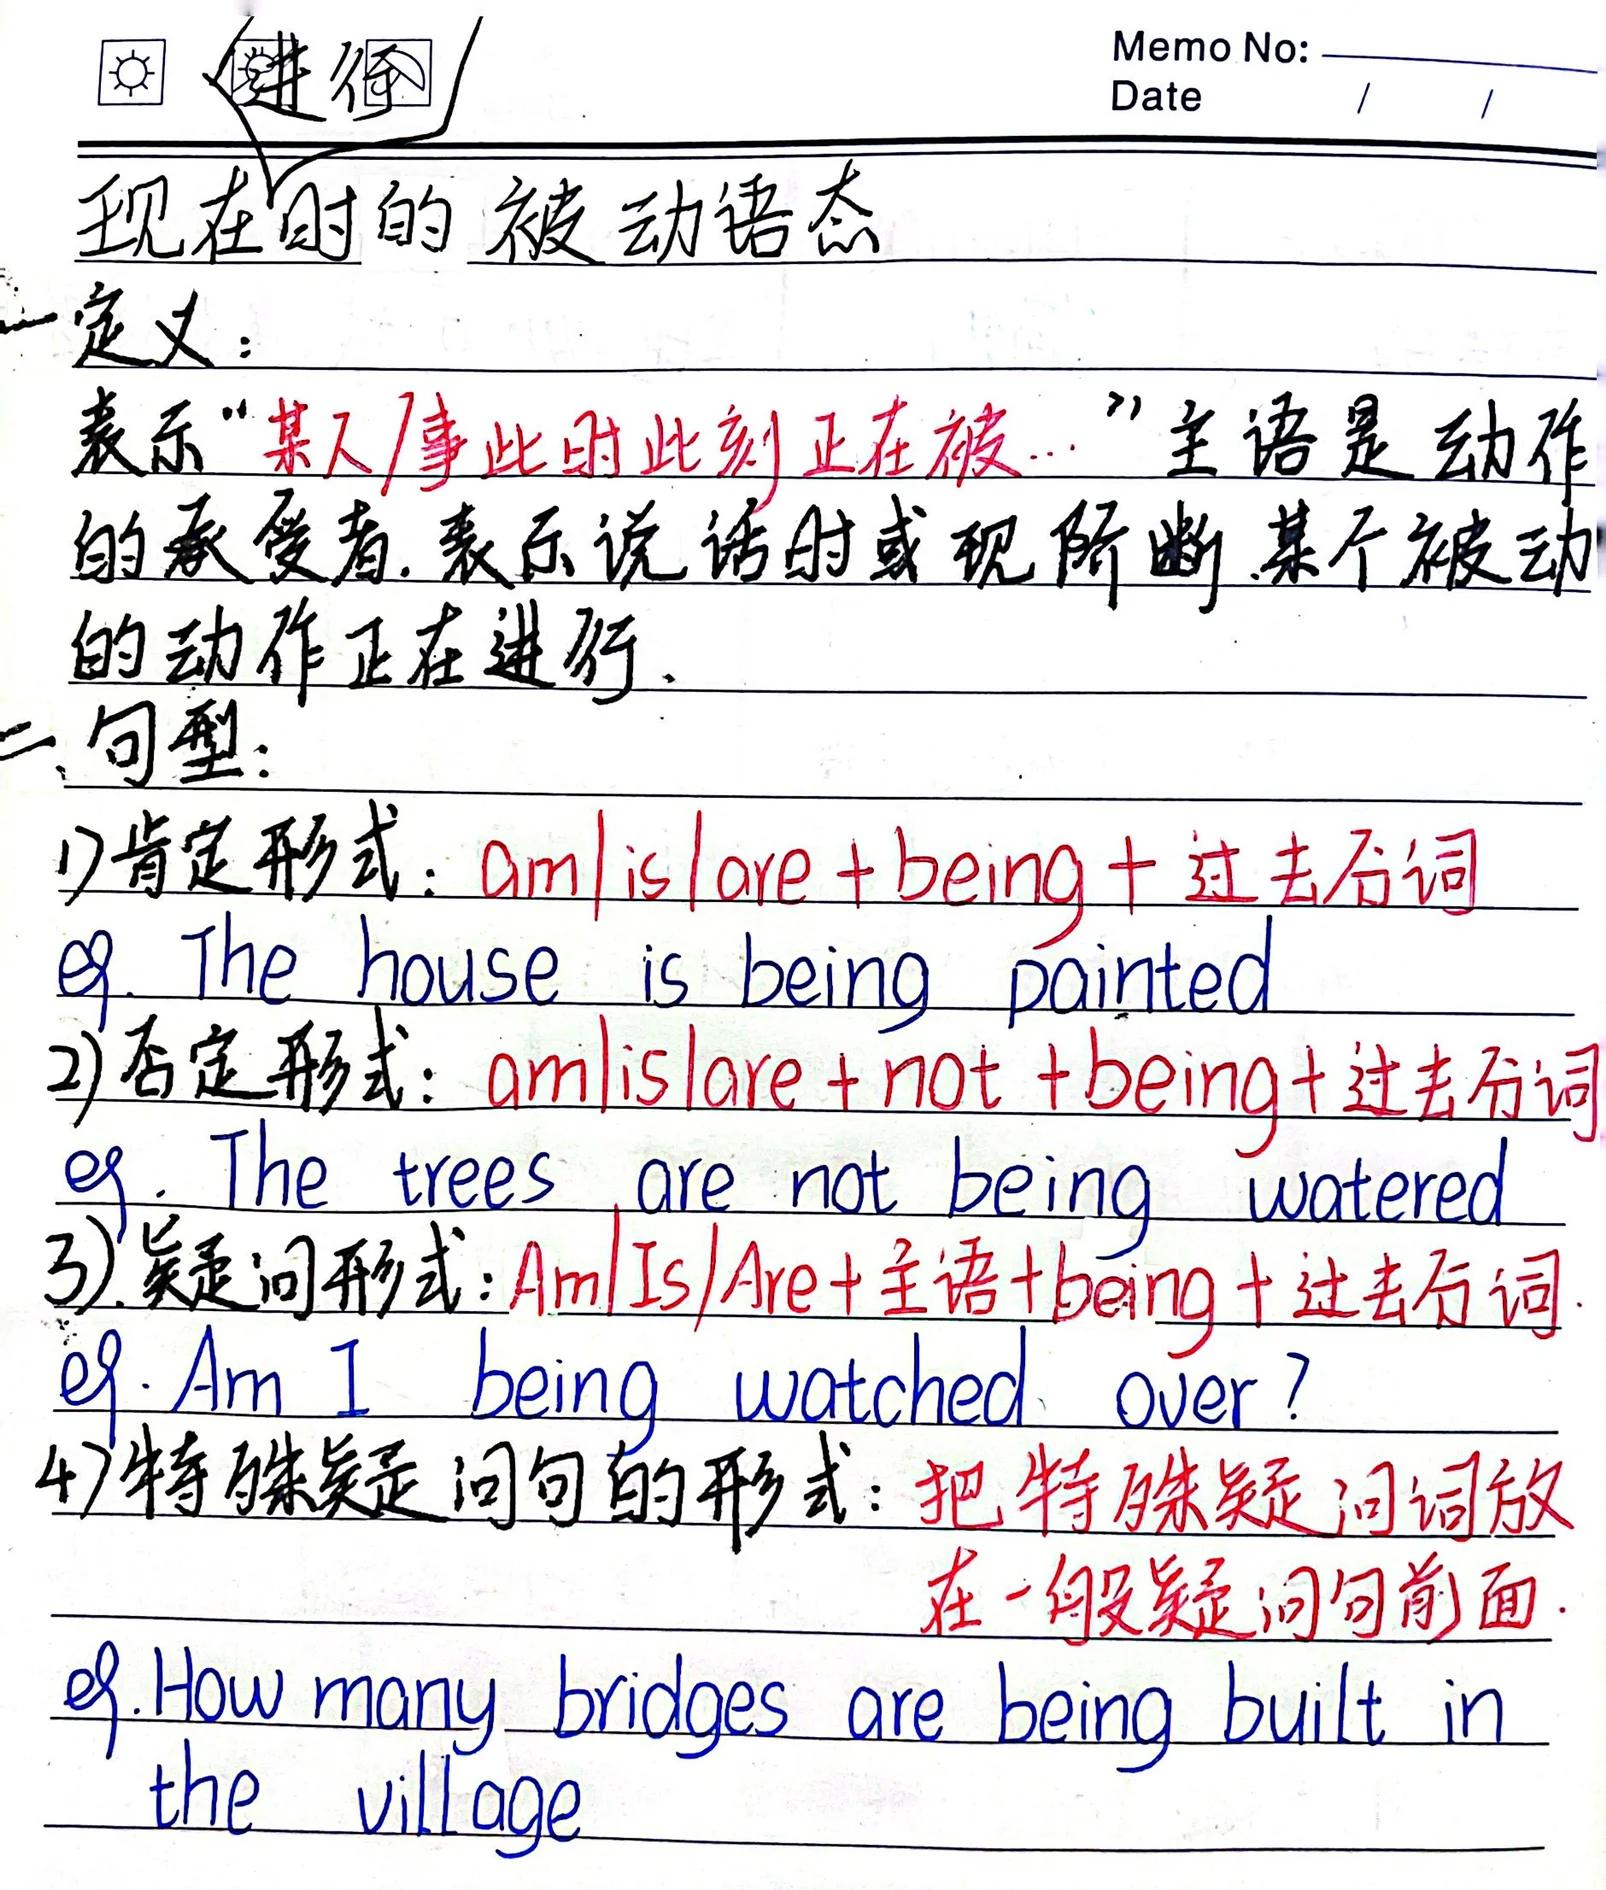 Memo No:
Date / /
进行
现在时的被动语态
一定义:
表示“某人/事此时此刻正在被…”主语是动作
的承受者.表示说话时或现阶断.某个被动
的动作正在进行.
二、句型:
1)肯定形式: am|is|are+being+过去分词
eg. The house is being painted
2)否定形式: am|is|are+not+being+过去分词
eg. The trees are not being watered
3).疑问形式: Am|Is/Are+主语+being+过去分词.
eg. Am I being watched over?
4)特殊疑问句的形式: 把特殊疑问词放
在一般疑问句前面.
eg. How many bridges are being built in
the village